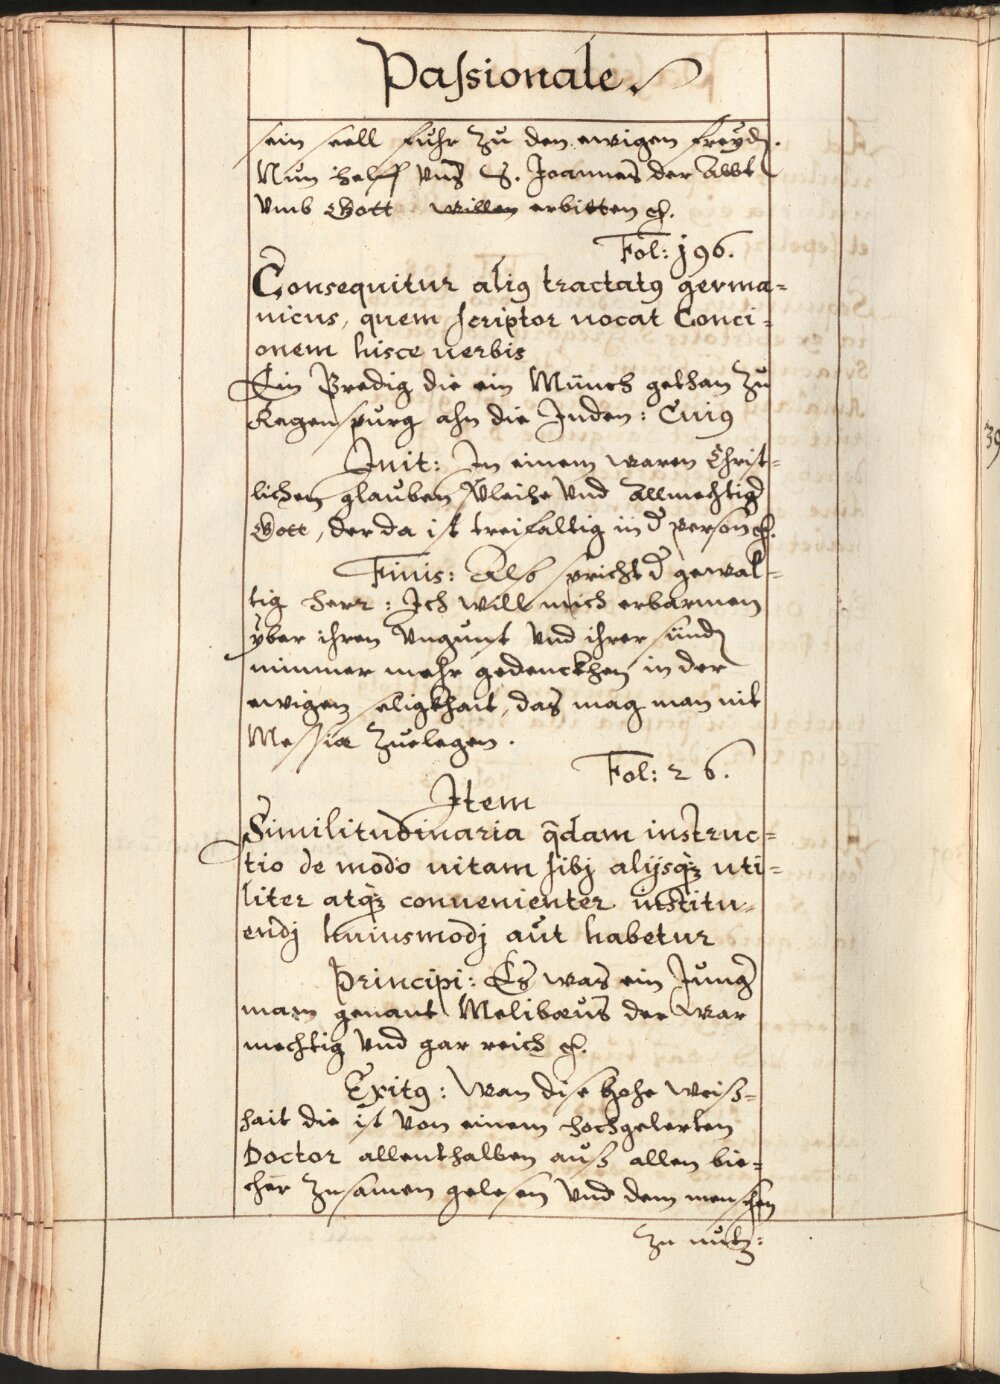 Passionale.
sein seell fuhr zu den ewigen freyd.
Nun helff vns S. Joannes der Abbt
vmb Gott willen erbitten &.
Fol: 196.
Consequitur aliq tractatq germa=
nicus, quem scriptor uocat Conci=
onem hisce uerbis
Ein Predig die ein Münch gethan zu
Regenspurg ahn die Juden: Cuiq
Init: In einem waren Christ=
lichen glauben und Allmechtig
Gott, der da ist treifaltig in d person &.
Finis: Also spricht d gewal=
tig herr: Ich will mich erbarmen
yber ihren vngunst vnd ihrer sünd
nimmer mehr gedenckhen in der
ewigen seligkhait, das mag man nit
Messiae zuelegen.
Fol: 26.
Item
Similitudinaria qdam instruc=
tio de modo uitam sibj alijsqz uti=
liter atqz conuenienter institu=
endj huiusmodj aut habetur
Principi: Es was ein Jung
man genant Melibaeus der war
mechtig vnd gar reich &.
Exitq: Wan dise hohe weiß=
hait die ist von einem hochgelerten
Doctor allenthalben auß allen bie=
cher zusamen gelesen vnd dem menschen
zu nutz:
39